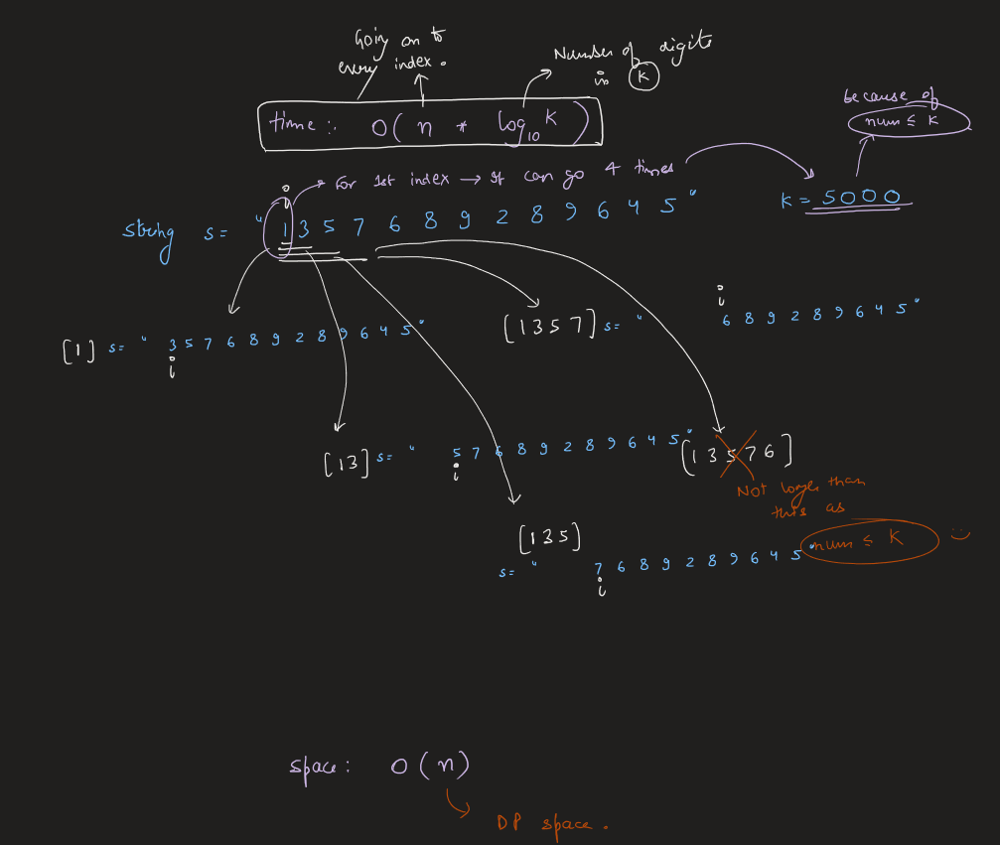 Going on to
every index.
Number of digits
in K
time: O( n * log10 K )
because of
num ≤ K
For 1st index → It can go 4 times
K = 5000
i
string s= " 1 3 5 7 6 8 9 2 8 9 6 4 5 "
[1] s= " 3 5 7 6 8 9 2 8 9 6 4 5 "
i
i
[1 3 5 7] s= " 6 8 9 2 8 9 6 4 5 "
[13] s= " 5 7 6 8 9 2 8 9 6 4 5 "
i
[1 3 5 7 6]
Not longer than
this as
num ≤ K
[135]
s= " 7 6 8 9 2 8 9 6 4 5 "
i
space: O(n)
DP space.